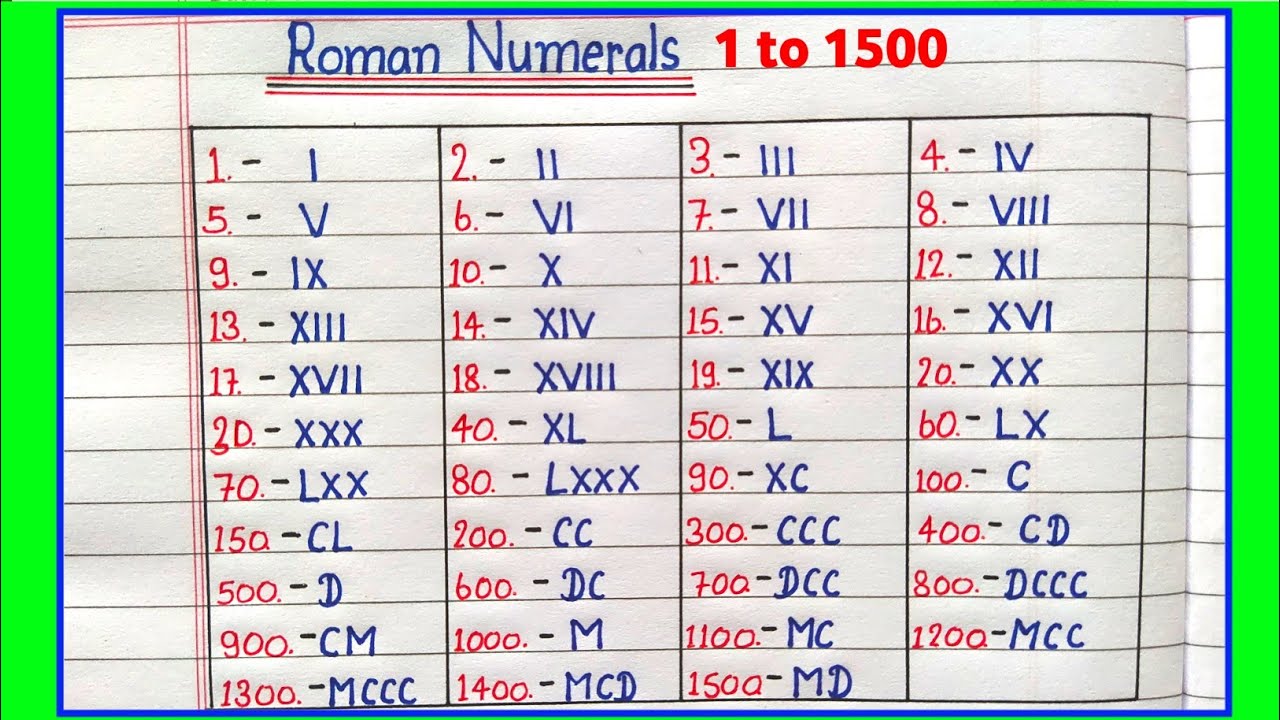 Roman Numerals 1 to 1500
1. - I 2. - II 3. - III 4. - IV
5. - V 6. - VI 7. - VII 8. - VIII
9. - IX 10. - X 11. - XI 12. - XII
13. - XIII 14. - XIV 15. - XV 16. - XVI
17. - XVII 18. - XVIII 19. - XIX 20. - XX
30. - XXX 40. - XL 50. - L 60. - LX
70. - LXX 80. - LXXX 90. - XC 100. - C
150. - CL 200. - CC 300. - CCC 400. - CD
500. - D 600. - DC 700. - DCC 800. - DCCC
900. - CM 1000. - M 1100. - MC 1200. - MCC
1300. - MCCC 1400. - MCD 1500. - MD